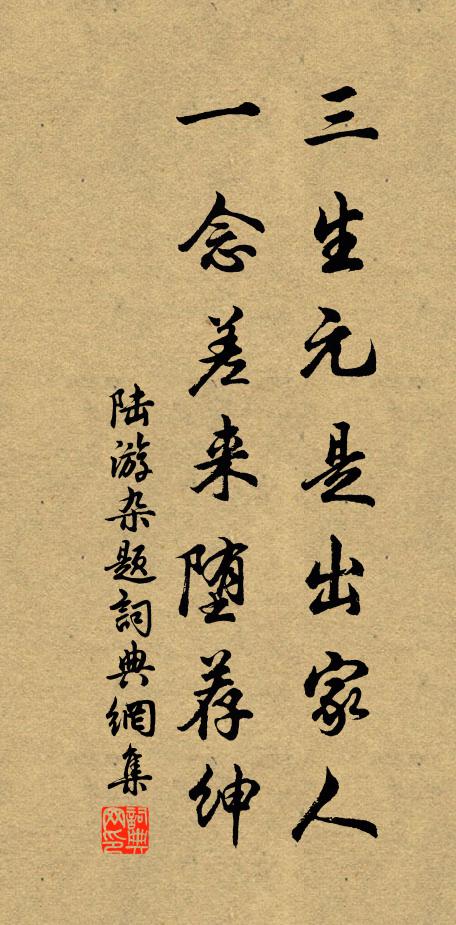 三生元是出家人
一念差来堕荐绅
陆游杂题詞典網集
詞典网印